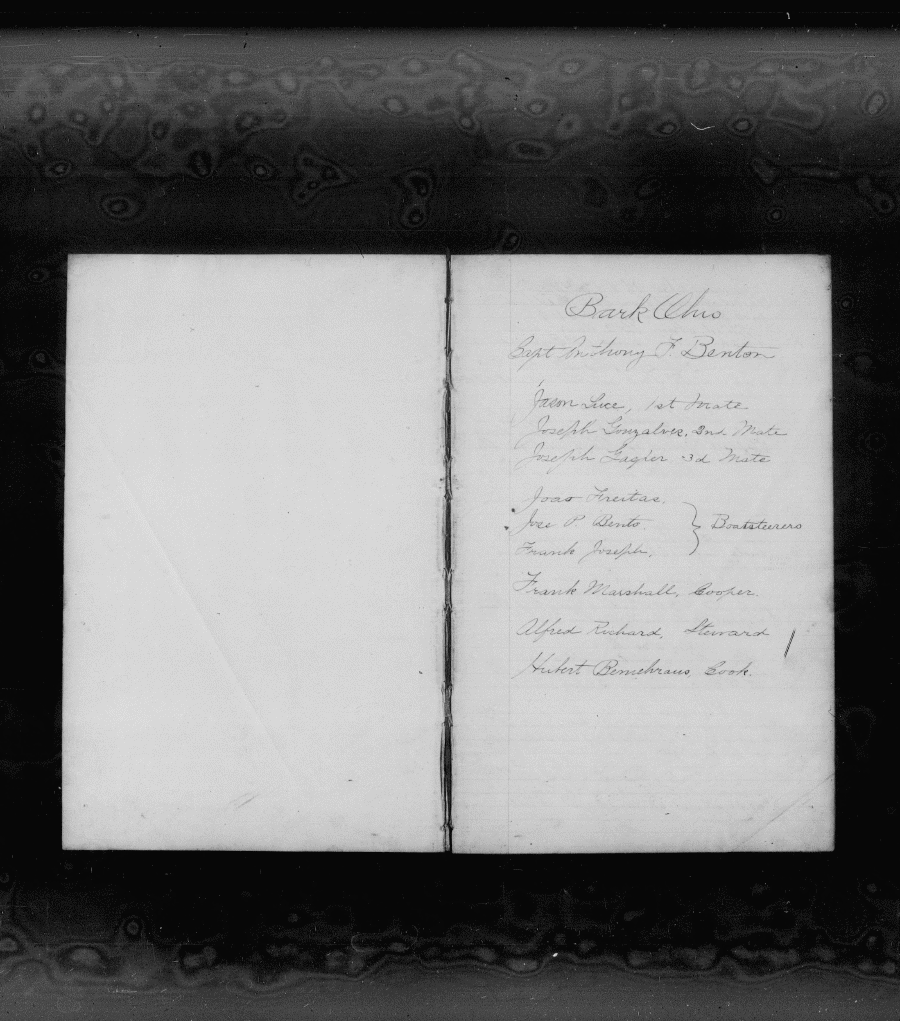 Bark Ohio
Capt Anthony F Benton
Jason Luce, 1st Mate
Joseph Gonzalves, 2nd Mate
Joseph 3d Mate
Joao Freitas.
Jose P Bento. } Boatsteerers
Frank Joseph.
Frank Marshall, Cooper.
Alfred Richard, Steward
Hubert Cook.